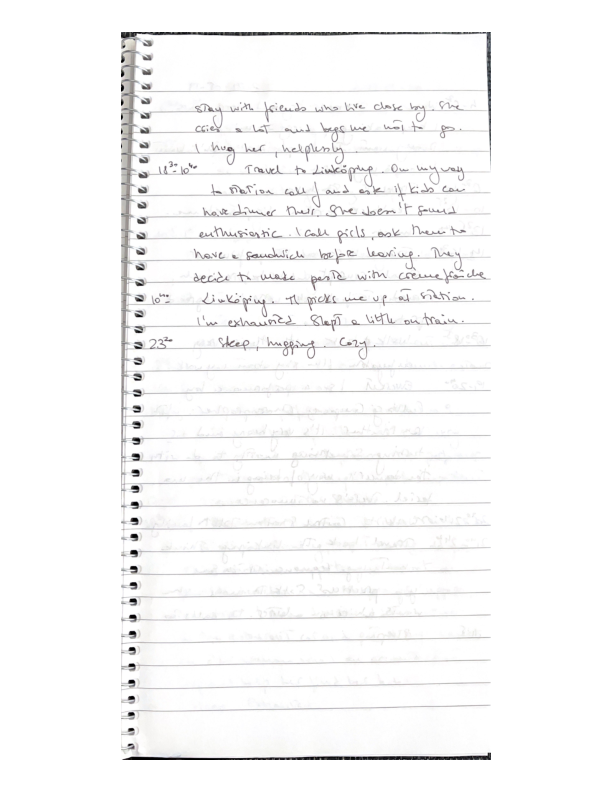 stay with friends who live close by. She
cries a lot and begs me not to go.
I hug her, helplessly.
18³⁰-10⁴⁰ Travel to Linköping. On my way
to station call J and ask if kids can
have dinner there. She doesn't sound
enthusiastic. I call girls, ask them to
have a sandwich before leaving. They
decide to make pasta with crème fraîche
10⁴⁰- Linköping. H picks me up at station.
I'm exhausted. Slept a little on train.
23²⁰ Sleep, hugging. Cozy.